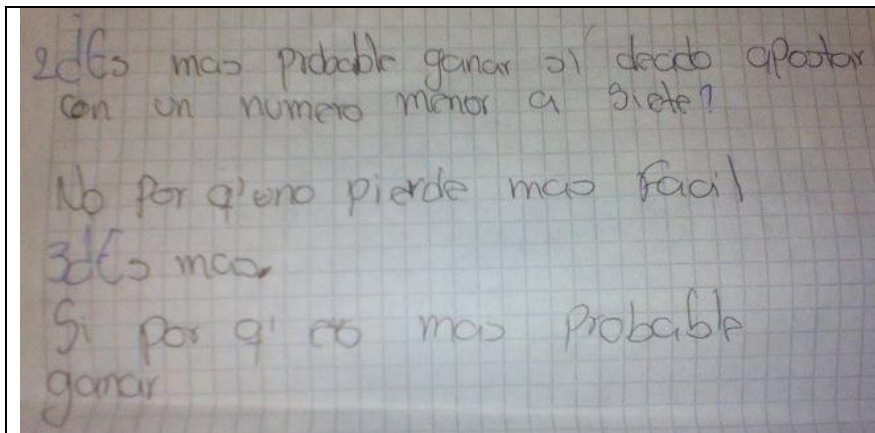 2¿Es mas probable ganar si decido apostar
con un numero menor a siete?
No por q' uno pierde mas facil
3¿Es mas
Si por q' es mas probable
ganar